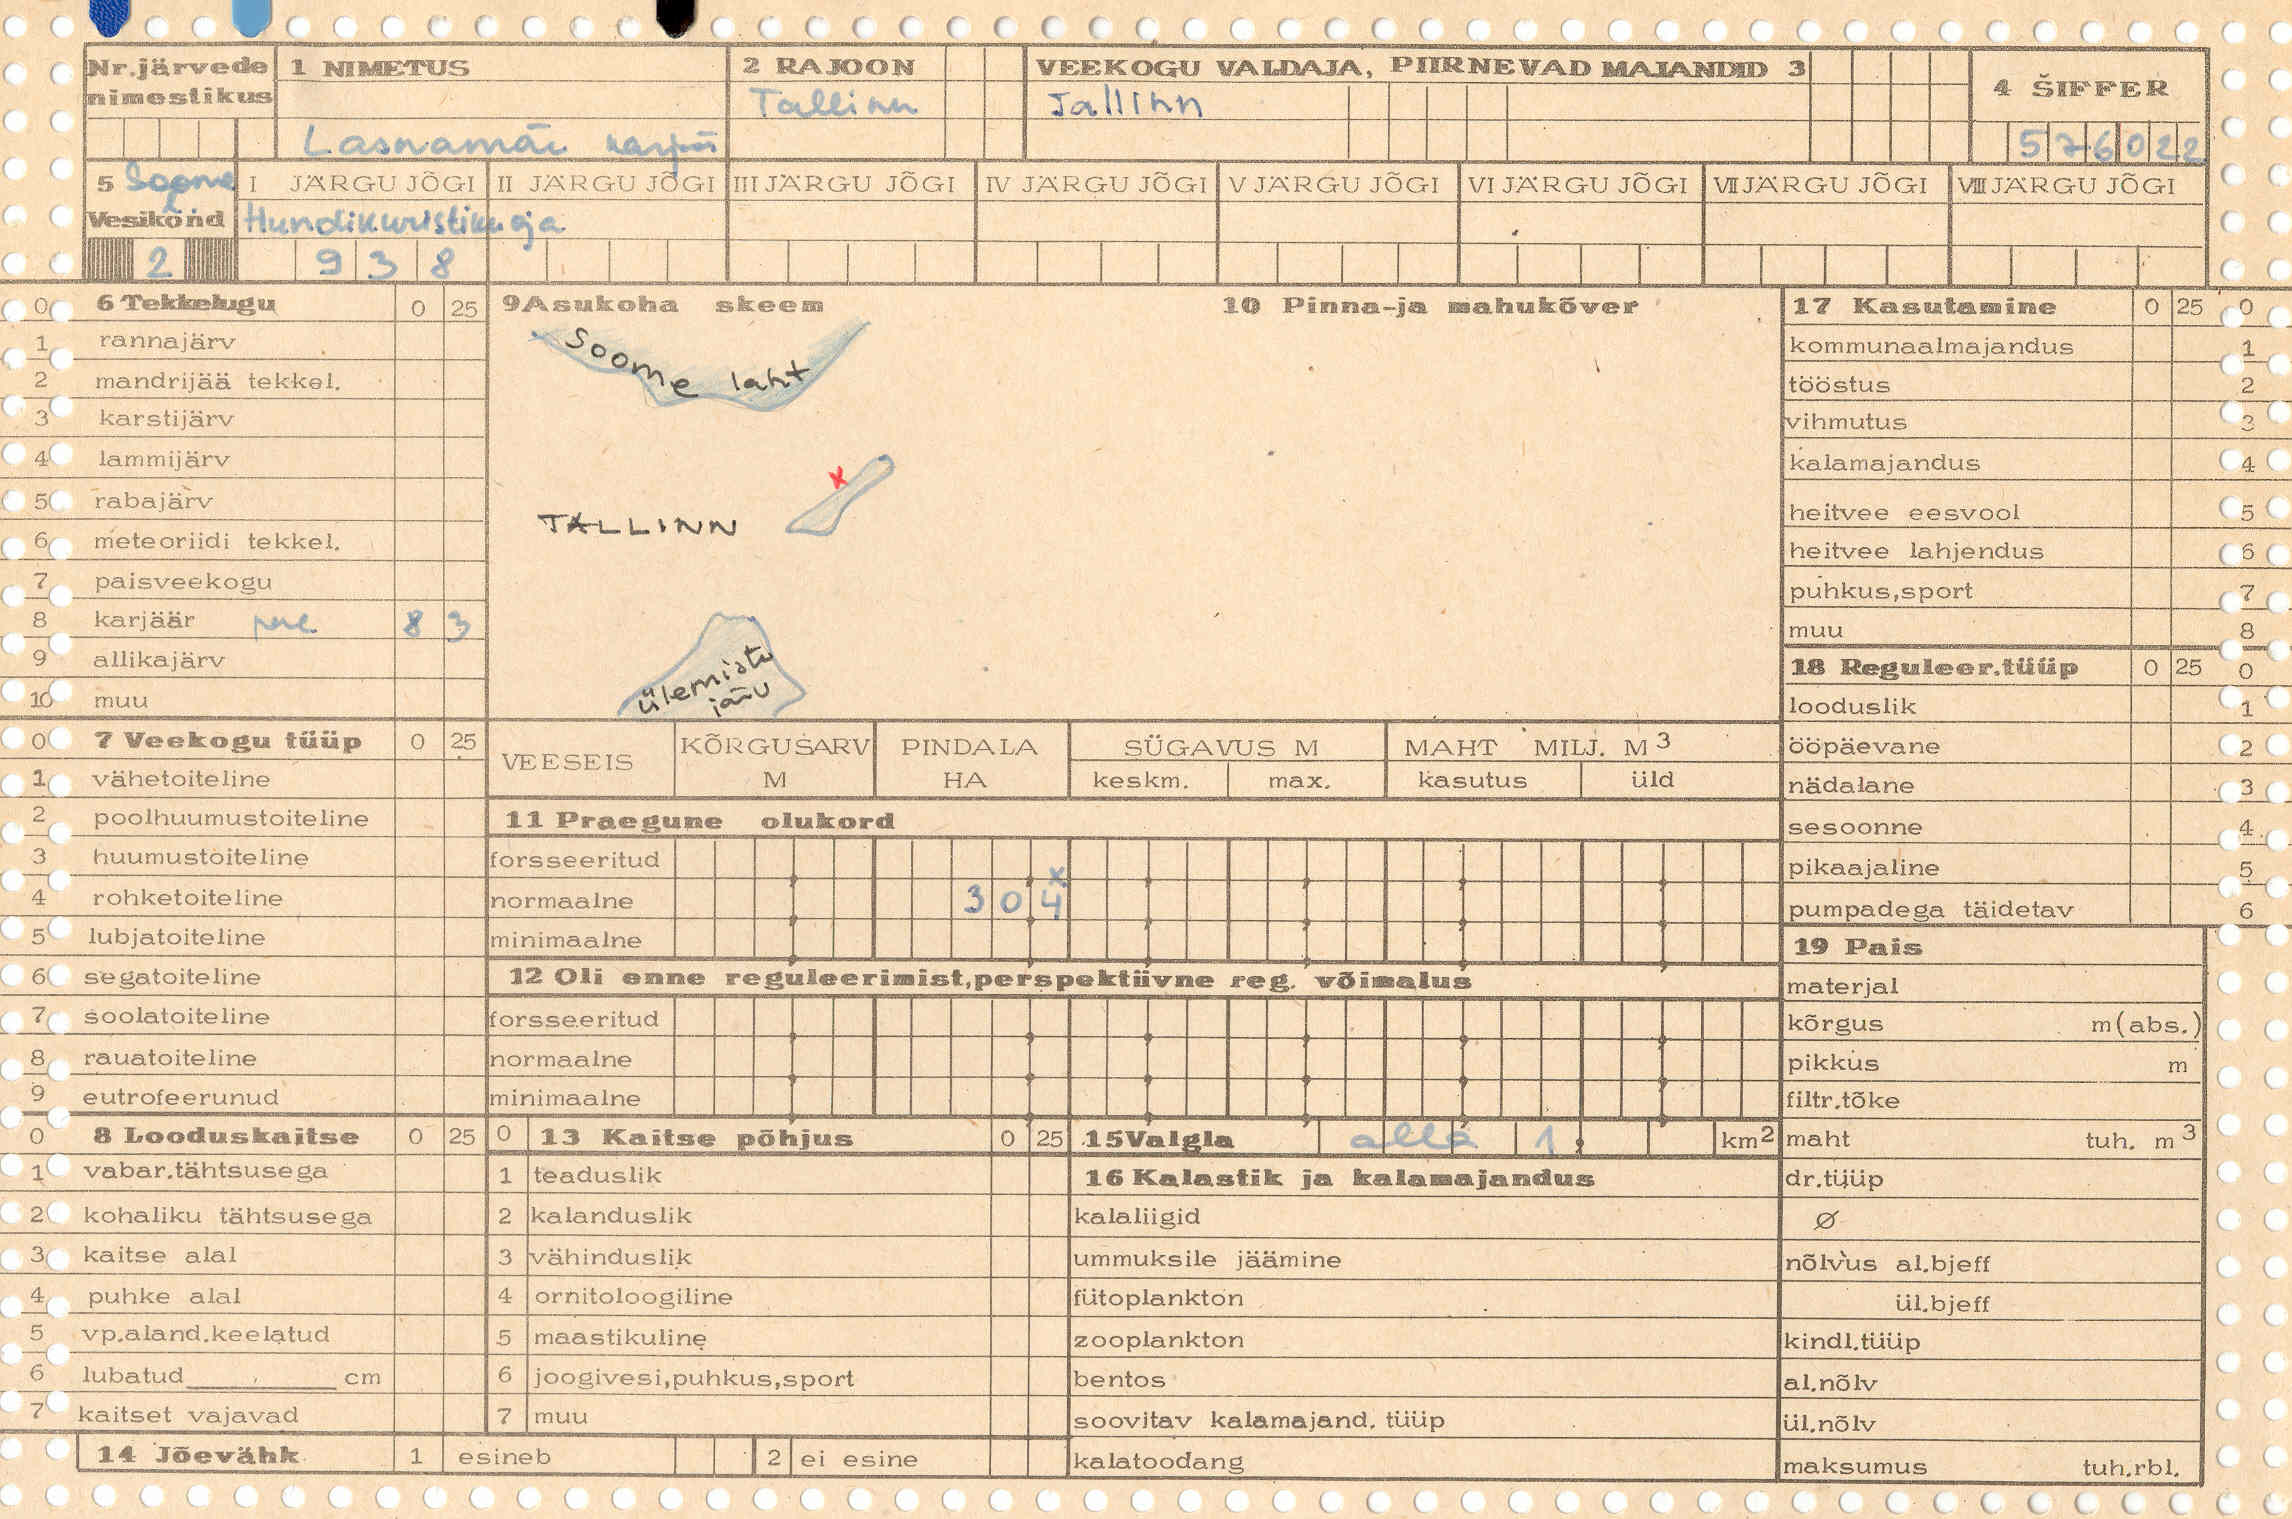 Nr.järvede nimestikus
1 NIMETUS
Lasnamäe
2 RAJOON
Tallinn
VEEKOGU VALDAJA, PIIRNEVAD MAJANDID 3
Tallinn
4 ŠIFFER
576022
5 Soome L
Vesikond
2
I JÄRGU JÕGI
Hundikuristiku oja
938
II JÄRGU JÕGI
III JÄRGU JÕGI
IV JÄRGU JÕGI
V JÄRGU JÕGI
VI JÄRGU JÕGI
VII JÄRGU JÕGI
VIII JÄRGU JÕGI
0 6 Tekkelugu 0 25
1 rannajärv
2 mandrijää tekkel.
3 karstijärv
4 lammijärv
5 rabajärv
6 meteoriidi tekkel.
7 paisveekogu
8 karjäär 8 3
9 allikajärv
10 muu
0 7 Veekogu tüüp 0 25
1 vähetoiteline
2 poolhuumustoiteline
3 huumustoiteline
4 rohketoiteline
5 lubjatoiteline
6 segatoiteline
7 soolatoiteline
8 rauatoiteline
9 eutrofeerunud
0 8 Looduskaitse 0 25
1 vabar.tähtsusega
2 kohaliku tähtsusega
3 kaitse alal
4 puhke alal
5 vp.aland.keelatud
6 lubatud cm
7 kaitset vajavad
14 Jõevähk 1 esineb 2 ei esine
9 Asukoha skeem
Soome laht
x
TALLINN
Ülemiste
järv
10 Pinna-ja mahukõver
VEESEIS
KÕRGUSARV M
PINDALA HA
SÜGAVUS M
keskm. max.
MAHT MILJ. M3
kasutus üld
11 Praegune olukord
forsseeritud
normaalne 3 0 4 x
minimaalne
12 Oli enne reguleerimist,perspektiivne reg. võimalus
forsseeritud
normaalne
minimaalne
0 13 Kaitse põhjus 0 25
1 teaduslik
2 kalanduslik
3 vähinduslik
4 ornitoloogiline
5 maastikuline
6 joogivesi,puhkus,sport
7 muu
15 Valgla alla 1, km2
16 Kalastik ja kalamajandus
kalaliigid
ummuksile jäämine
fütoplankton
zooplankton
bentos
soovitav kalamajand. tüüp
kalatoodang
17 Kasutamine 0 25 0
kommunaalmajandus 1
tööstus 2
vihmutus 3
kalamajandus 4
heitvee eesvool 5
heitvee lahjendus 6
puhkus,sport 7
muu 8
18 Reguleer.tüüp 0 25 0
looduslik 1
ööpäevane 2
nädalane 3
sesoonne 4
pikaajaline 5
pumpadega täidetav 6
19 Pais
materjal
kõrgus m(abs.)
pikkus m
filtr.tõke
maht tuh. m3
dr.tüüp
Ø
nõlvus al.bjeff
ül.bjeff
kindl.tüüp
al.nõlv
ül.nõlv
maksumus tuh.rbl.